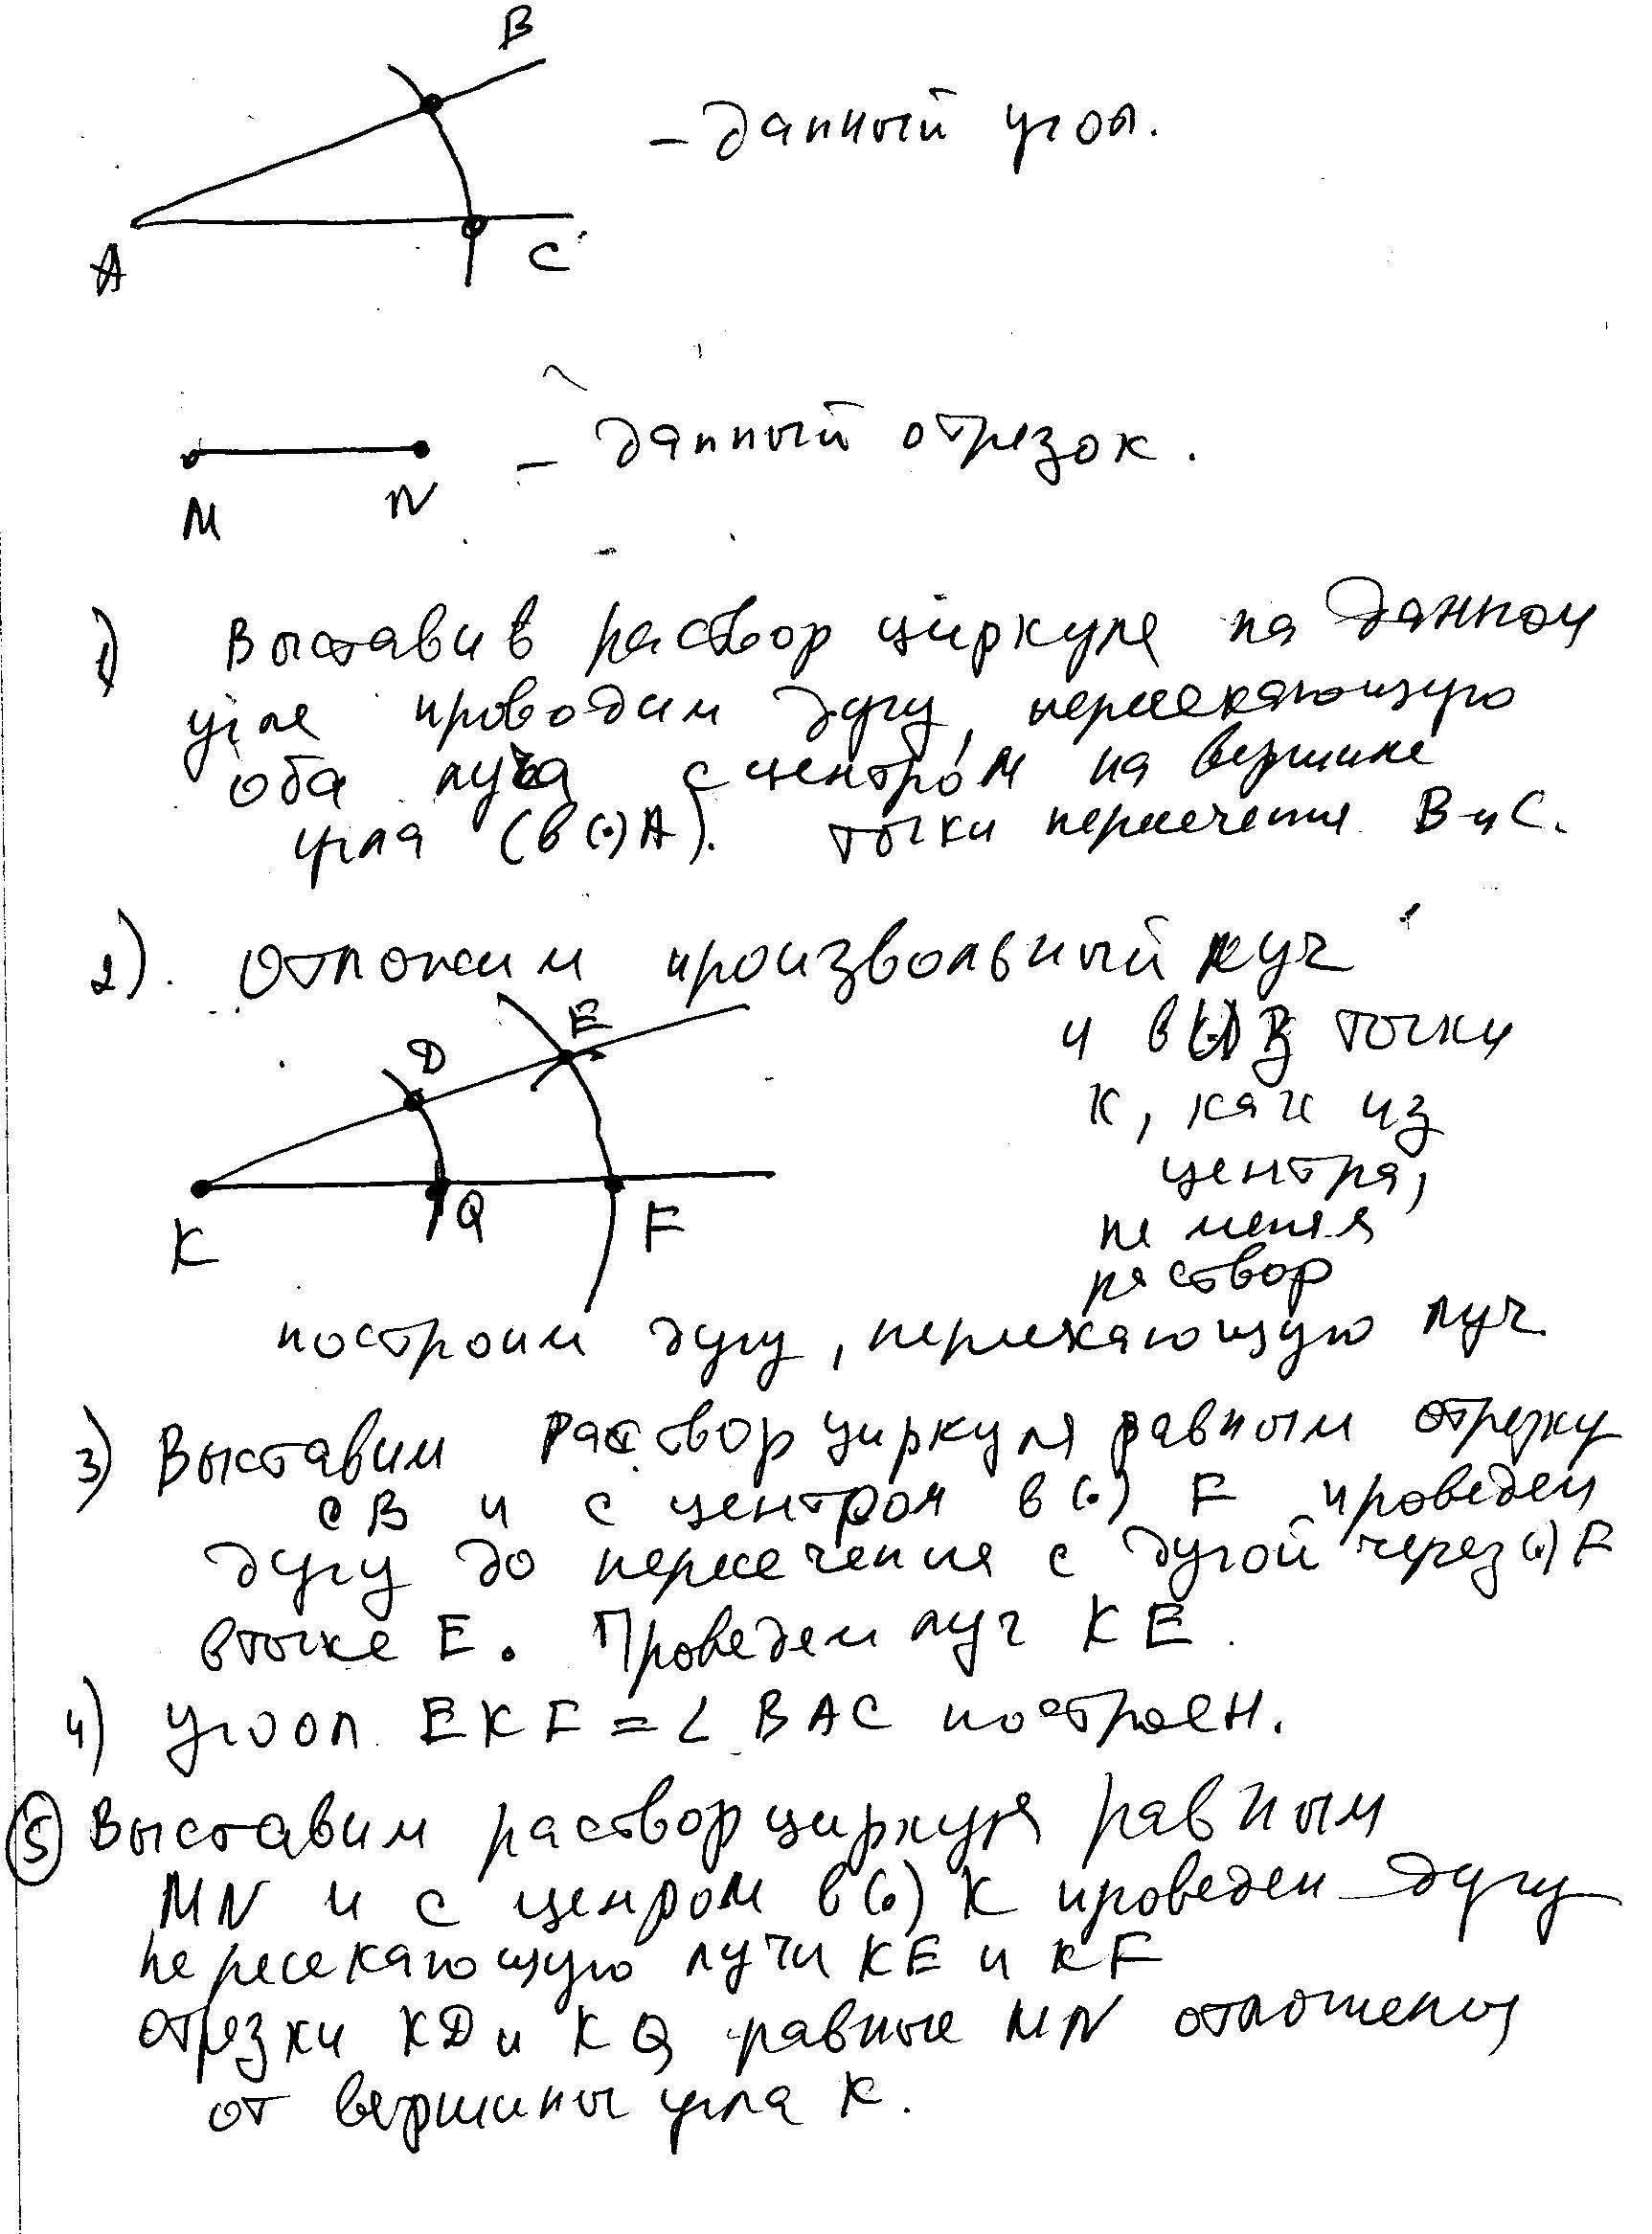 B
– данный угол.
A
C
– данный отрезок.
M
N
1) Выставив раствор циркуля на данном
угле проводим дугу, пересекающую
оба луча с центром на вершине
угла (в (·) A). точки пересечения B и C.
2). Отложим произвольный луч
E
D
и в точки
K, как из
центра,
K
Q
F
не меняя
раствор
построим дугу, пересекающую луч
3) Выставим раствор циркуля равным отрезку
CB и с центром в (·) F проведем
дугу до пересечения с дугой через (·) F
в точке E. Проведем луч KE.
4) угол EKF = ∠ BAC построен.
5 Выставим раствор циркуля равным
MN и с ценром в (·) K проведем дугу
пересекающую лучи KE и KF
отрезки KD и KQ равные MN отложены
от вершины угла K.